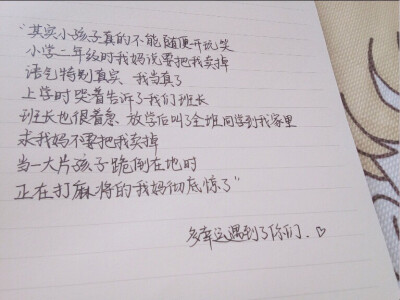 "其实小孩子真的不能随便开玩笑
小学二年级时我妈说要把我卖掉
语气特别真实 我当真了
上学时哭着告诉了我们班长
班长也很着急 放学后叫了全班同学到我家里
求我妈不要把我卖掉
当一大片孩子跪倒在地时
正在打麻将的我妈彻底惊了"
多幸运遇到了你们.♡